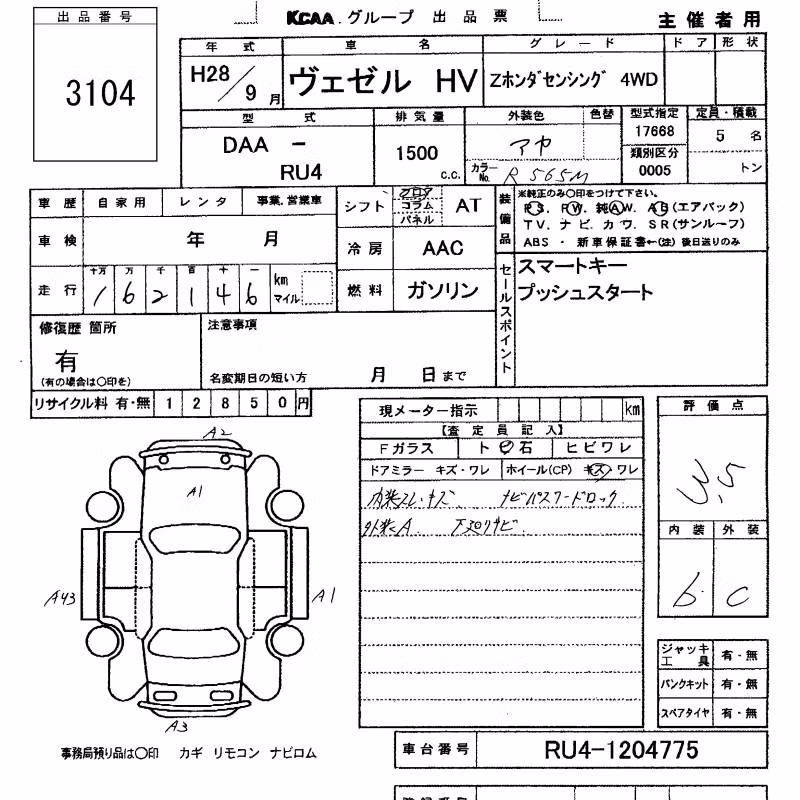 出品番号
3104
KCAA.グループ 出品票
主催者用
年式 車名 グレード ドア 形状
H28/9月 ヴェゼル HV Zホンダセンシング 4WD
型式 排気量 外装色 色替 型式指定 定員・積載
DAA - RU4
1500 c.c.
カラーNo. R565M
17668
類別区分
0005
5 名
トン
車歴 自家用 レンタ 事業.営業車
車検 年 月
走行 十万 万 千 百 十 一
1 6 2 1 4 6 km マイル
シフト フロア コラム パネル AT
冷房 AAC
燃料 ガソリン
装備品
※純正のみ○印をつけて下さい。
PS. PW. 純AW. AB(エアバック)
TV. ナビ. カワ. SR(サンルーフ)
ABS ・ 新車保証書←(注)後日送りのみ
セールスポイント
スマートキー
プッシュスタート
修復歴 箇所
有
(有の場合は○印を)
注意事項
名変期日の短い方 月 日まで
リサイクル料 有・無 12850円
現メーター指示 km
【査定員記入】
Fガラス ト 飛石 ヒビワレ
ドアミラー キズ・ワレ ホイール(CP) キズ・ワレ
内装スレ.キズ ナビパスワードロック
外装A 下廻サビ
評価点
3.5
内装 外装
b. C
A2
A1
A43
A1
A3
ジャッキ工具 有・無
パンクキット 有・無
スペアタイヤ 有・無
事務局預り品は○印 カギ リモコン ナビロム
車台番号 RU4-1204775